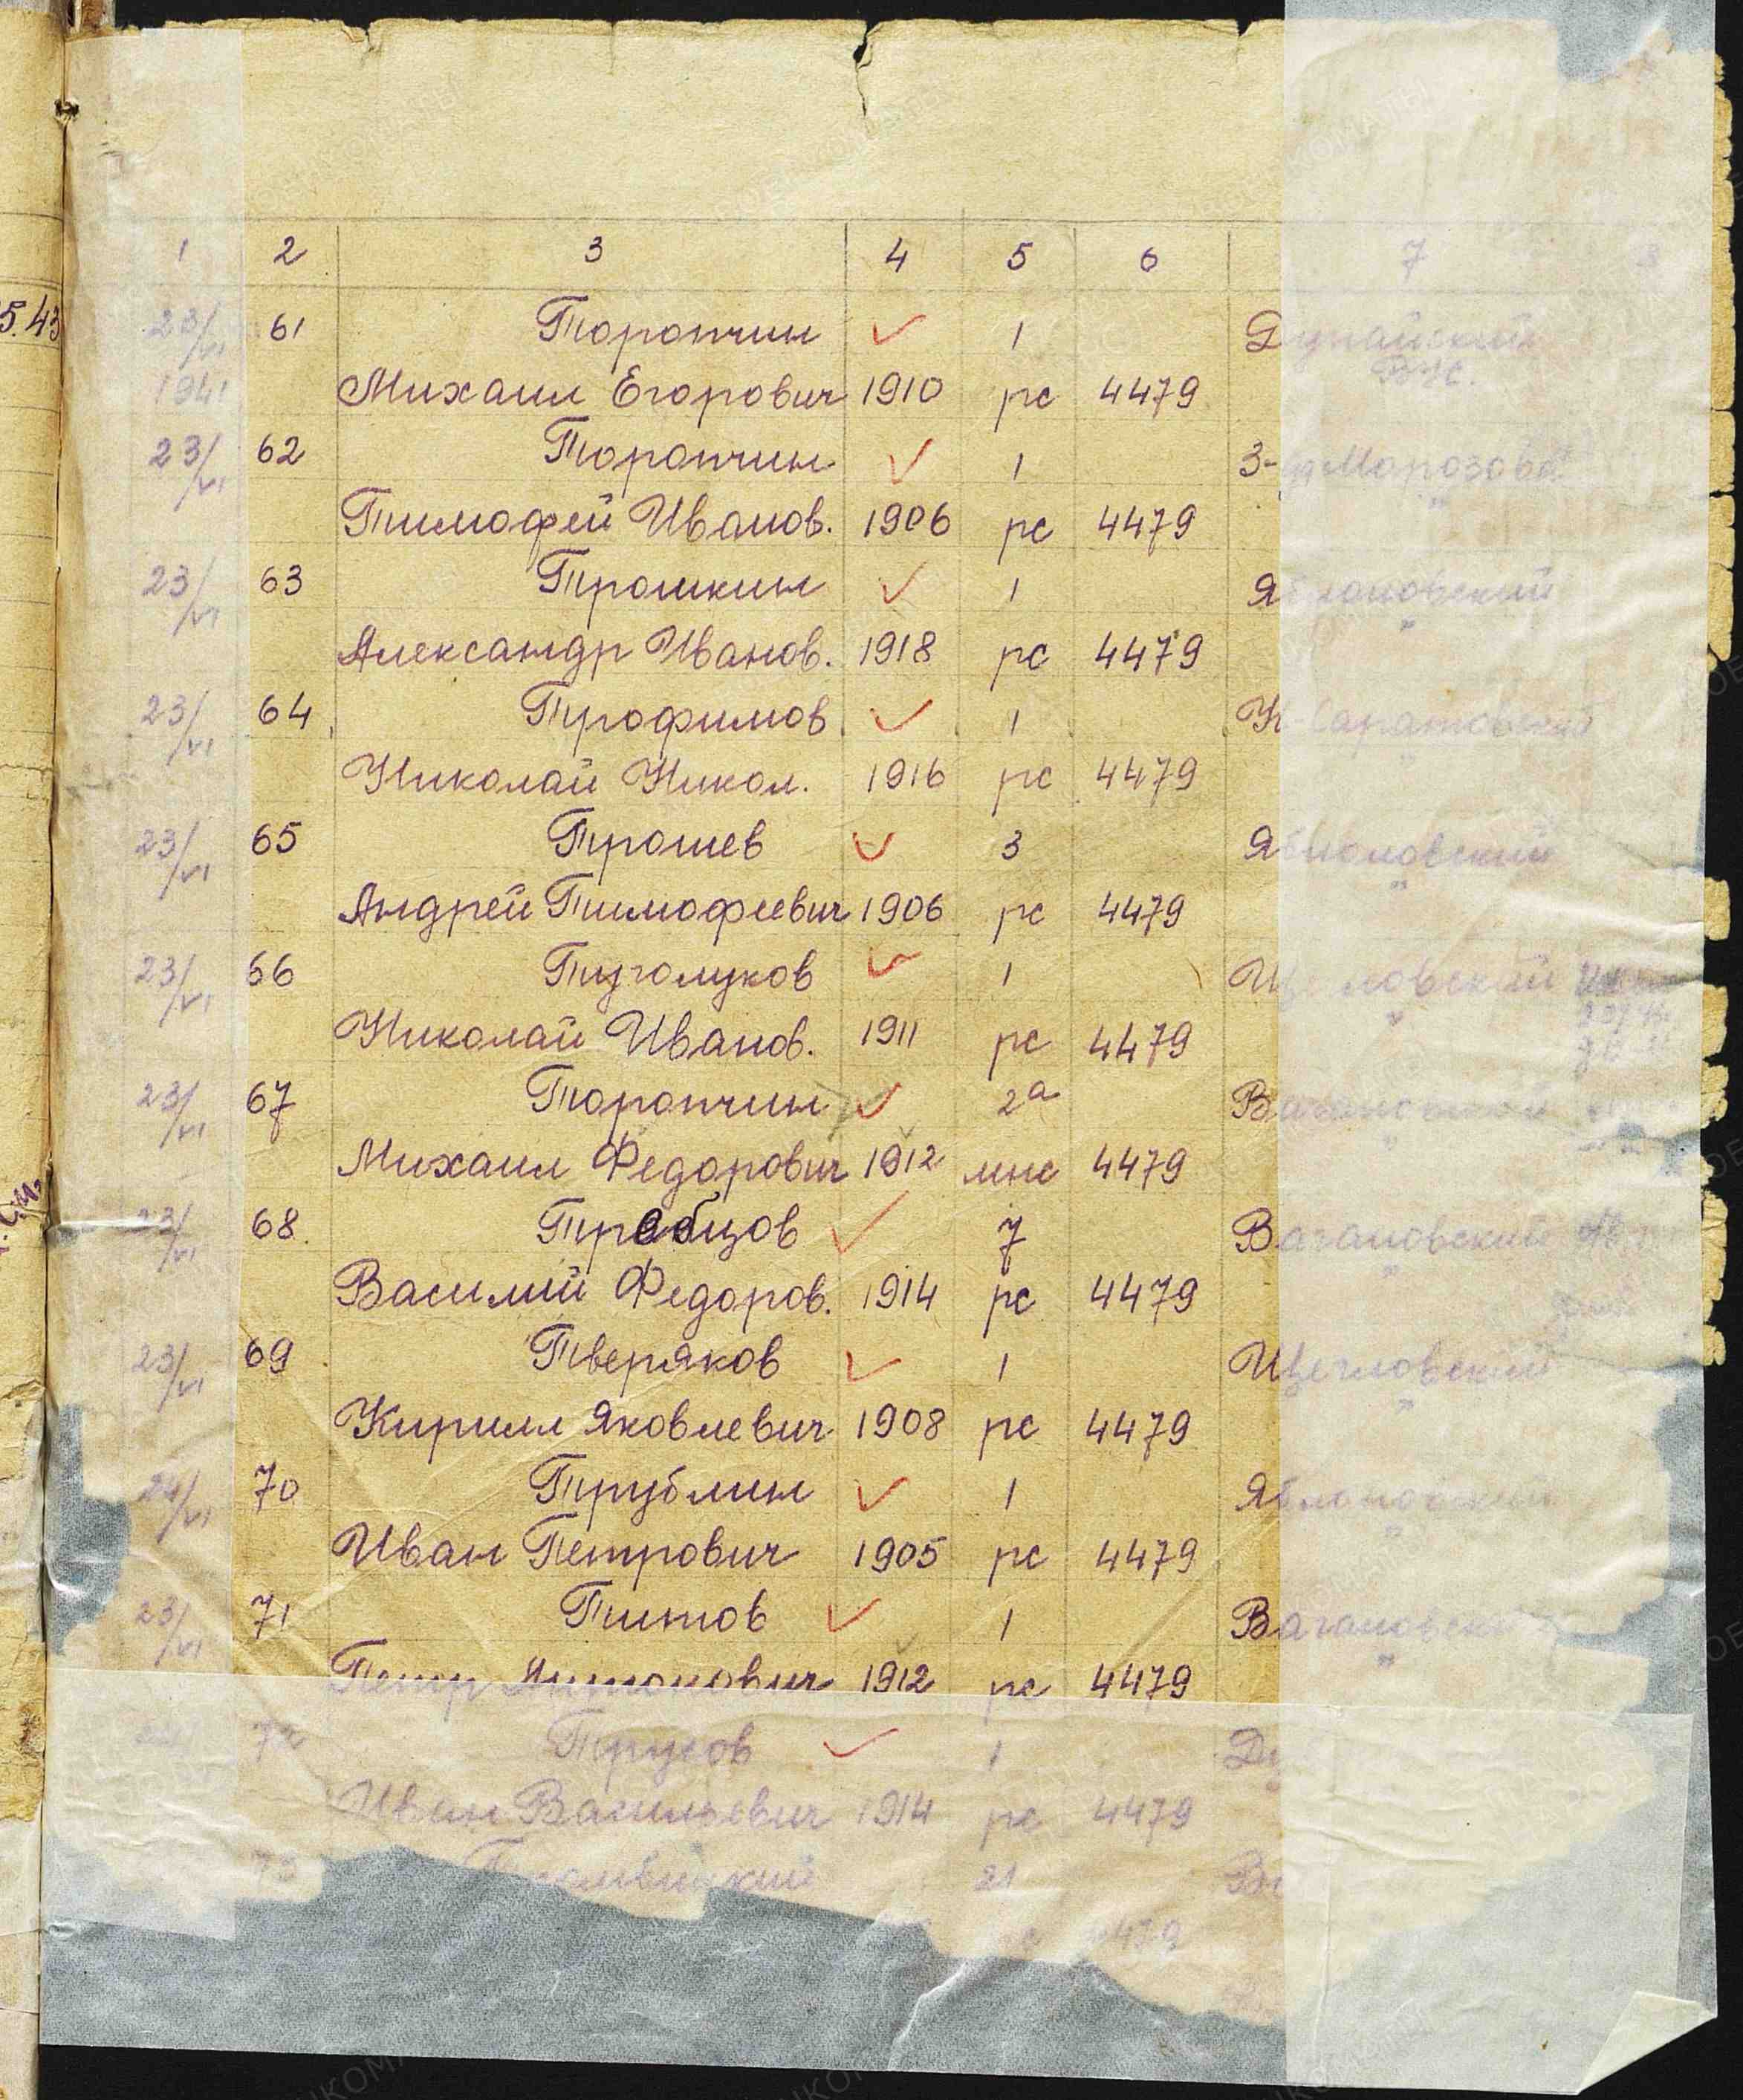 1 2 3 4 5 6 7 8
5.43
23/VI 61 Торопчин 1 Дунайский
1941 Михаил Егорович 1910 рс 4479 ВУС.
23/VI 62 Торопчин 1 З-д Морозова
Тимофей Иванов. 1906 рс 4479 "
23/VI 63 Трошкин 1 Яблоновский
Александр Иванов. 1918 рс 4479 "
23/VI 64 Трофимов 1 Н-Саратовский
Николай Никол. 1916 рс 4479 "
23/VI 65 Трошев 3 Яблоновский
Андрей Тимофеевич 1906 рс 4479 "
23/VI 66 Туголуков 1 Щегловский
Николай Иванов. 1911 рс 4479 "
23/VI 67 Торопчин 2а Вагановский
Михаил Федорович 1912 мнс 4479 "
23/VI 68 7 Вагановский
Василий Федоров. 1914 рс 4479 "
23/VI 69 Тверяков 1 Щегловский
Кирилл Яковлевич 1908 рс 4479 "
24/VI 70 Трублин 1 Яблоновский
Иван Петрович 1905 рс 4479 "
23/VI 71 Титов 1 Вагановский
Петр Антонович 1912 рс 4479 "
72 Трусов 1 Ду
Иван Васильевич 1914 рс 4479
73 21 Ва
4479